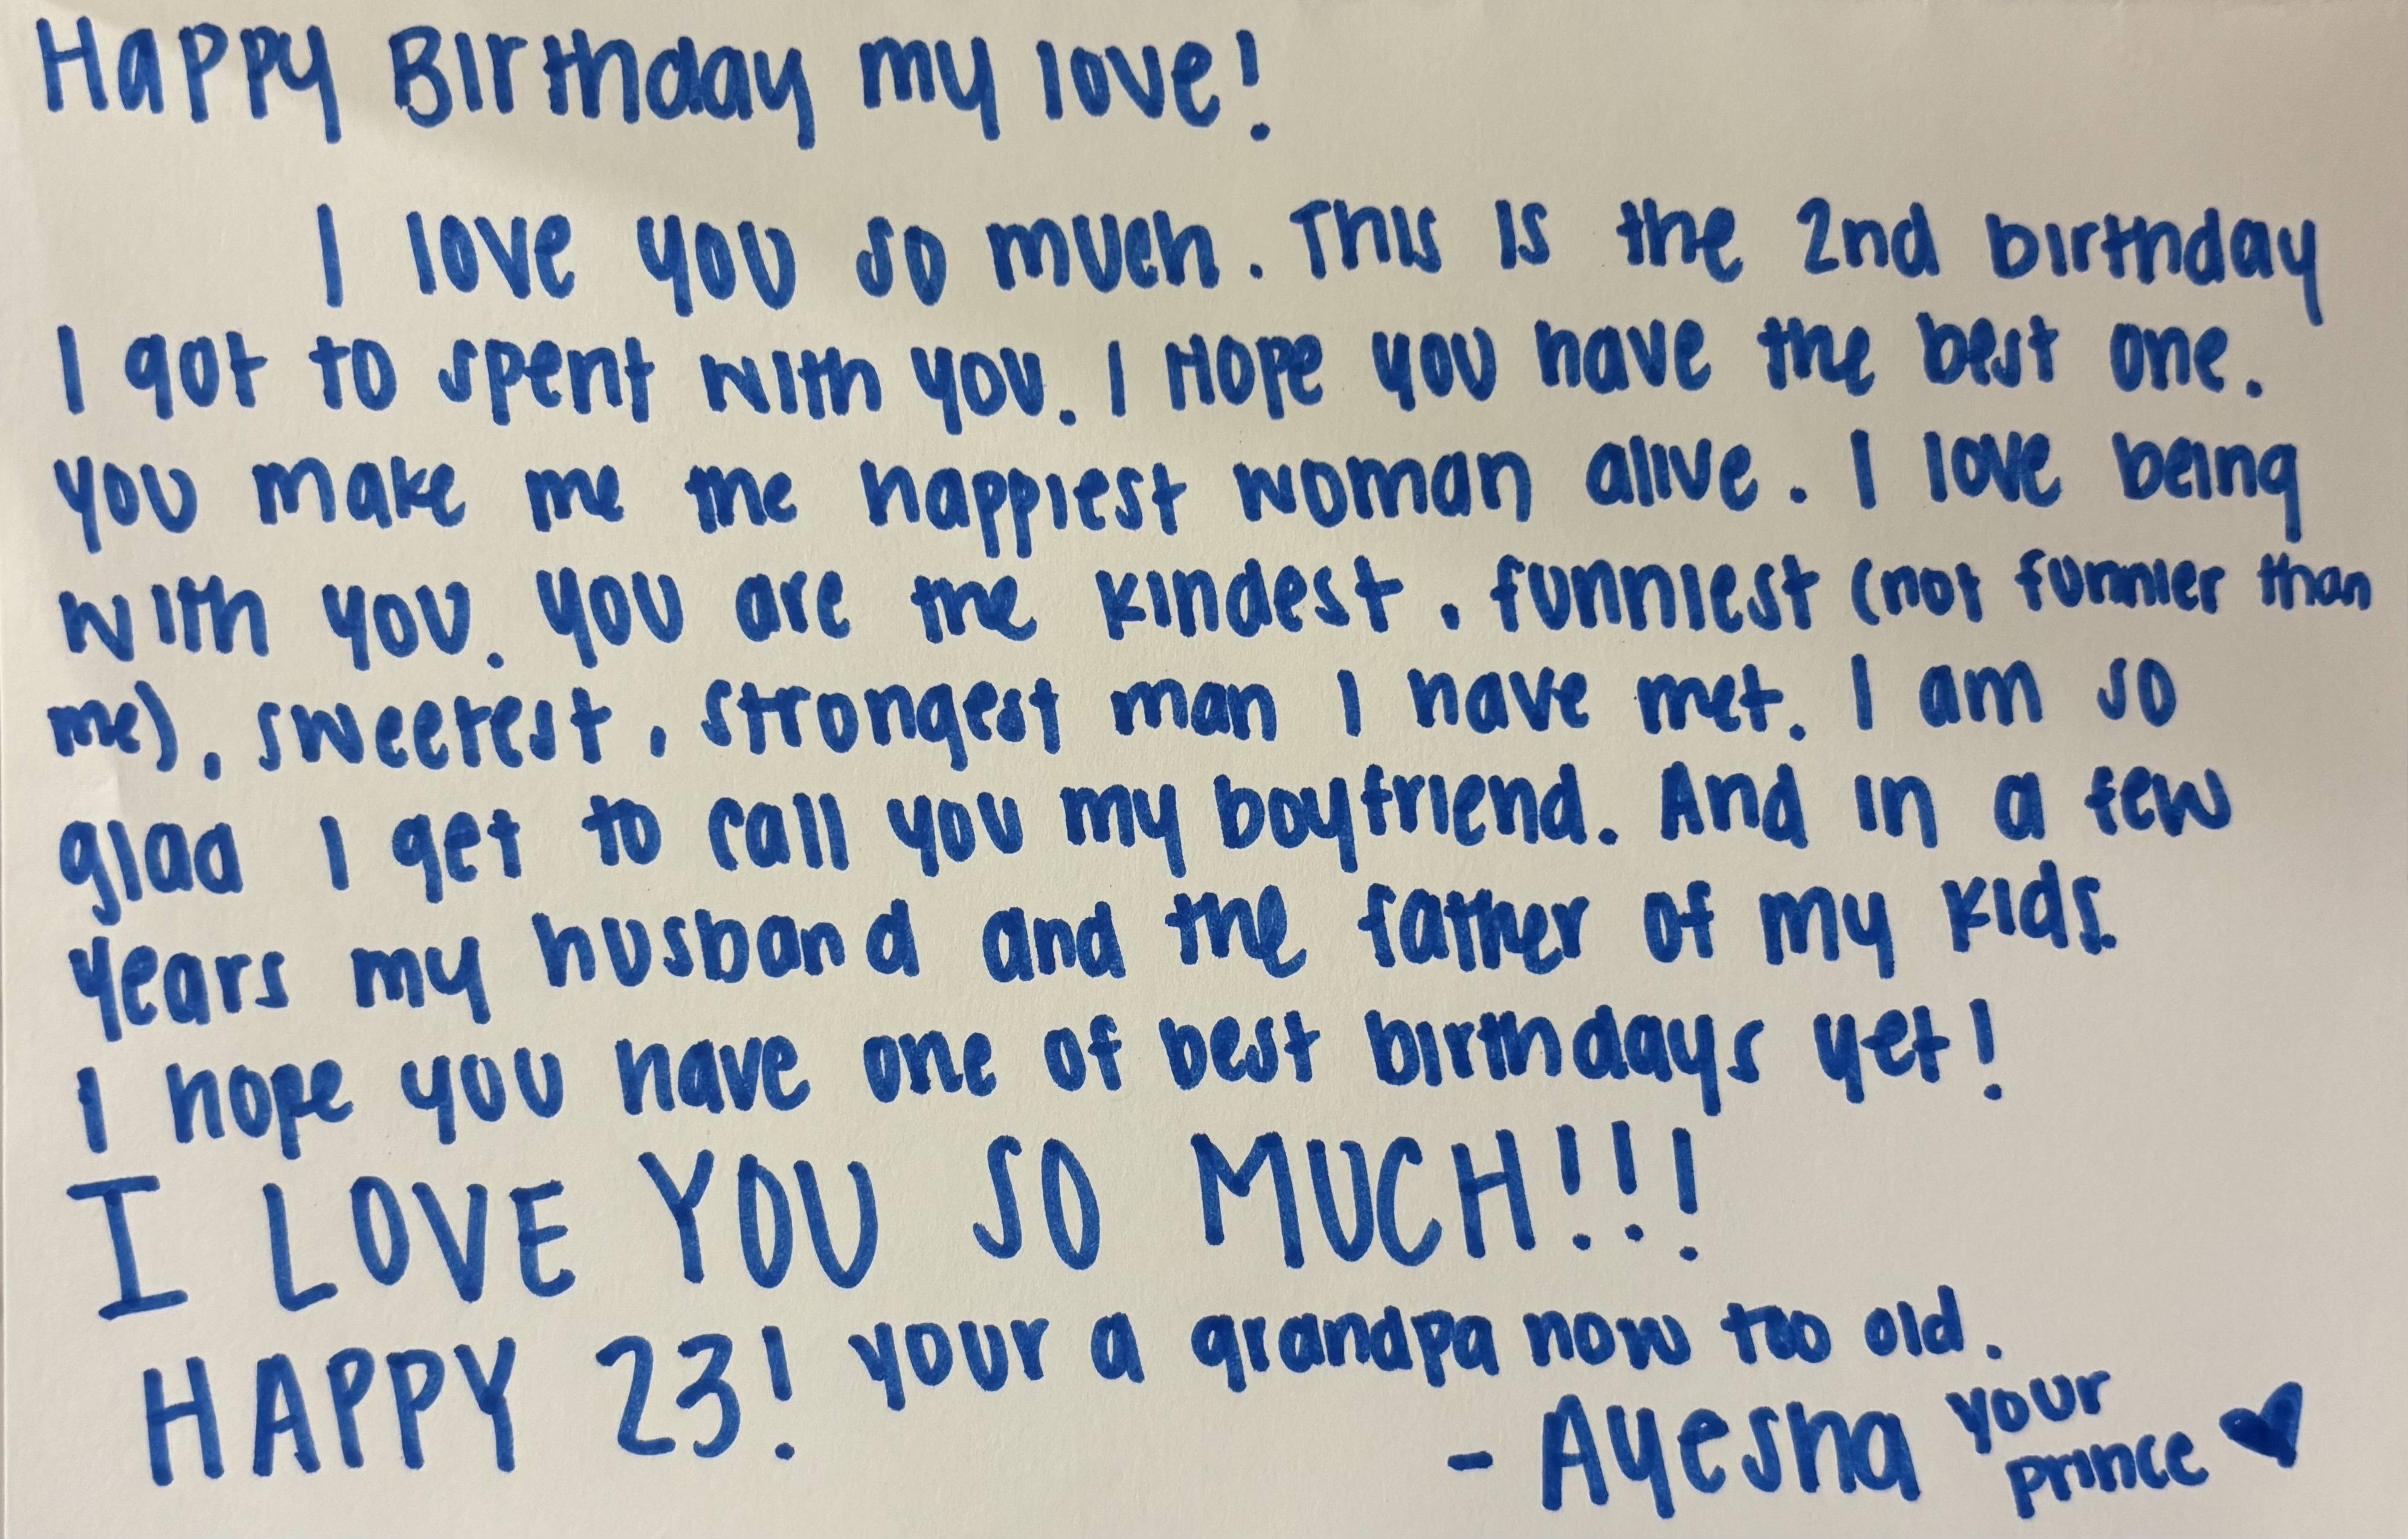 Happy Birthday my love!
I love you so much. This is the 2nd birthday
I got to spent with you. I Hope you have the best one.
you make me the happiest woman alive. I love being
with you. you are the kindest, funniest (not funnier than
me), sweetest, strongest man I have met. I am so
glad I get to call you my boyfriend. And in a few
years my husband and the father of my kids.
I hope you have one of best birthdays yet!
I LOVE YOU SO MUCH!!!
HAPPY 23! your a grandpa now too old.
- Ayesha your
prince ♥